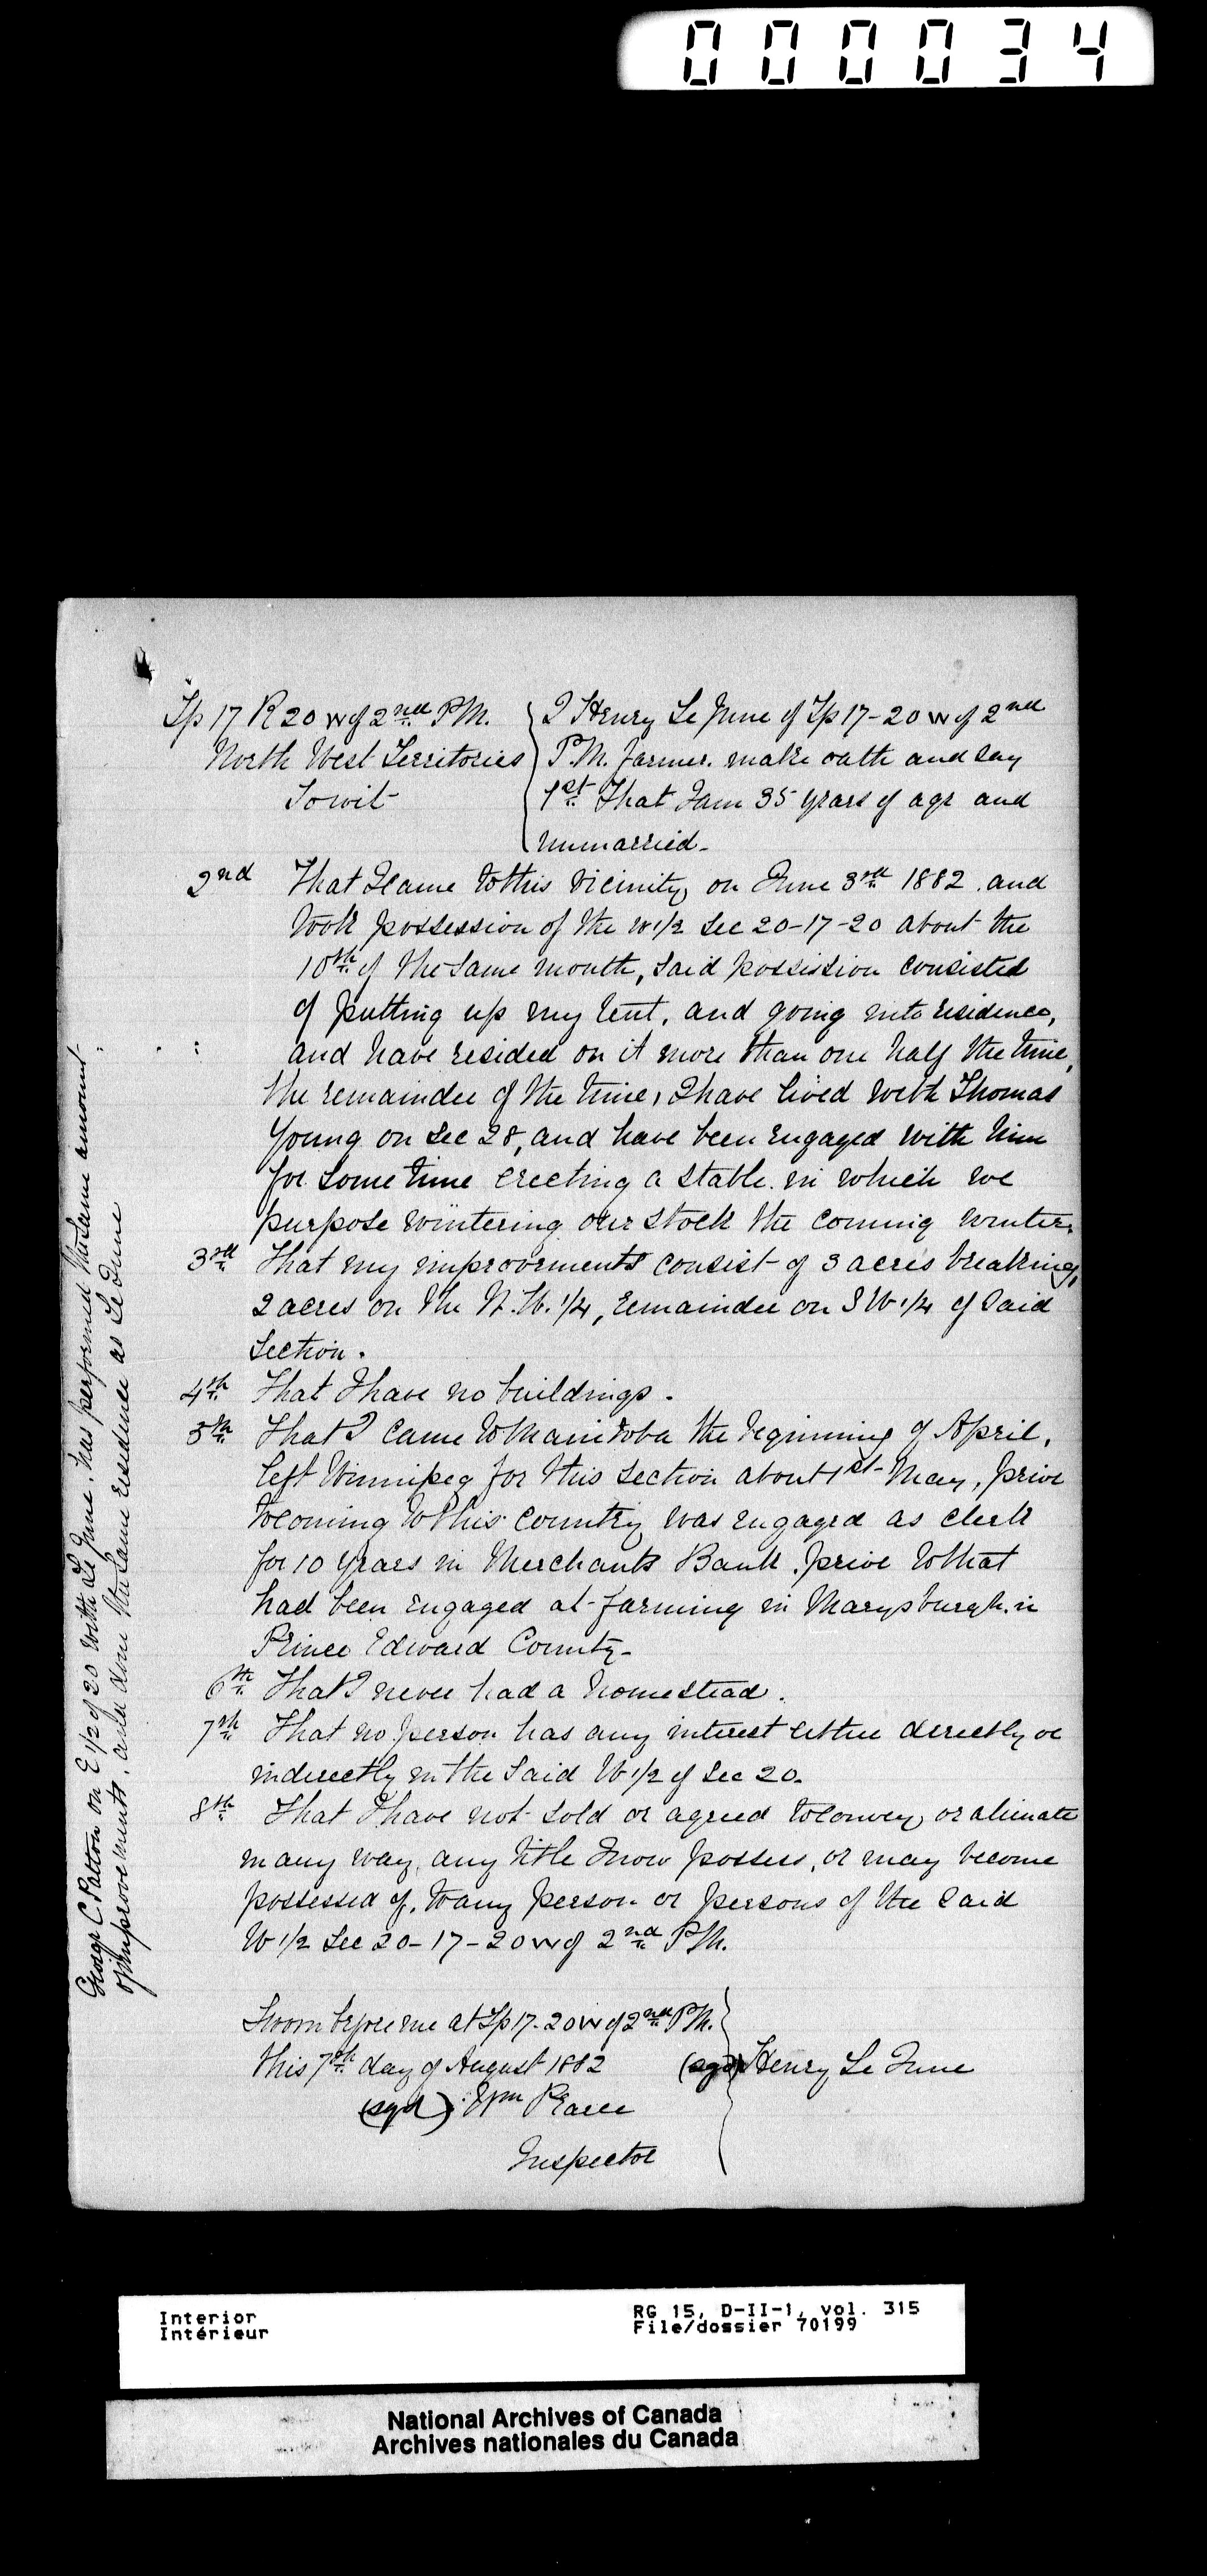 000034
Tp 17 R 20 W of 2nd P.M.
North West Territories
To wit
I Henry Le June of Tp 17-20 W of 2nd
P.M. farmer. make oath and say
1st That I am 35 years of age and
unmarried.
2nd That I came to this vicinity on June 3rd 1882. and
took possession of the W 1/2 Sec 20-17-20 about the
10th of the same month, said possission consisted
of putting up my tent, and going into residence,
and have resided on it more than one half the time,
the remainder of the time, I have lived with Thomas
Young on Sec 28, and have been engaged with him
for some time erecting a stable. in which we
purpose wintering our stock the coming winter.
3rd That my improvements consist of 3 acres breaking,
2 acres on the N.W. 1/4, remainder on S W 1/4 of said
Section.
4th That I have no buildings.
5th That I came to Manitoba the beginning of April,
left Winnipeg for this section about 1st May, prior
to coming to this country was engaged as clerk
for 10 years in Merchants Bank. prior to that
had been engaged at farming in Marysburgh. in
Prince Edward County-
6th That I never had a homestead.
7th That no person has any interest either directly or
indirectly in the said W 1/2 of Sec 20.
8th That I have not sold or agreed to convey or alienate
in any way, any title I now possess, or may become
possessed of, to any person or persons of the said
W 1/2 Sec 20-17-20 W of 2nd P.M.
Sworn before me at Tp 17-20 W of 2nd P.M.
this 7th day of August 1882
(sgd) Henry Le June
(sgd) Wm Pearce
Inspector
George C. Patton on E 1/2 of 20 with Le June. has performed the same amount
of improvements, and done the same residence as Le June
Interior
Intérieur
RG 15, D-II-1, vol. 315
File/dossier 70199
National Archives of Canada
Archives nationales du Canada